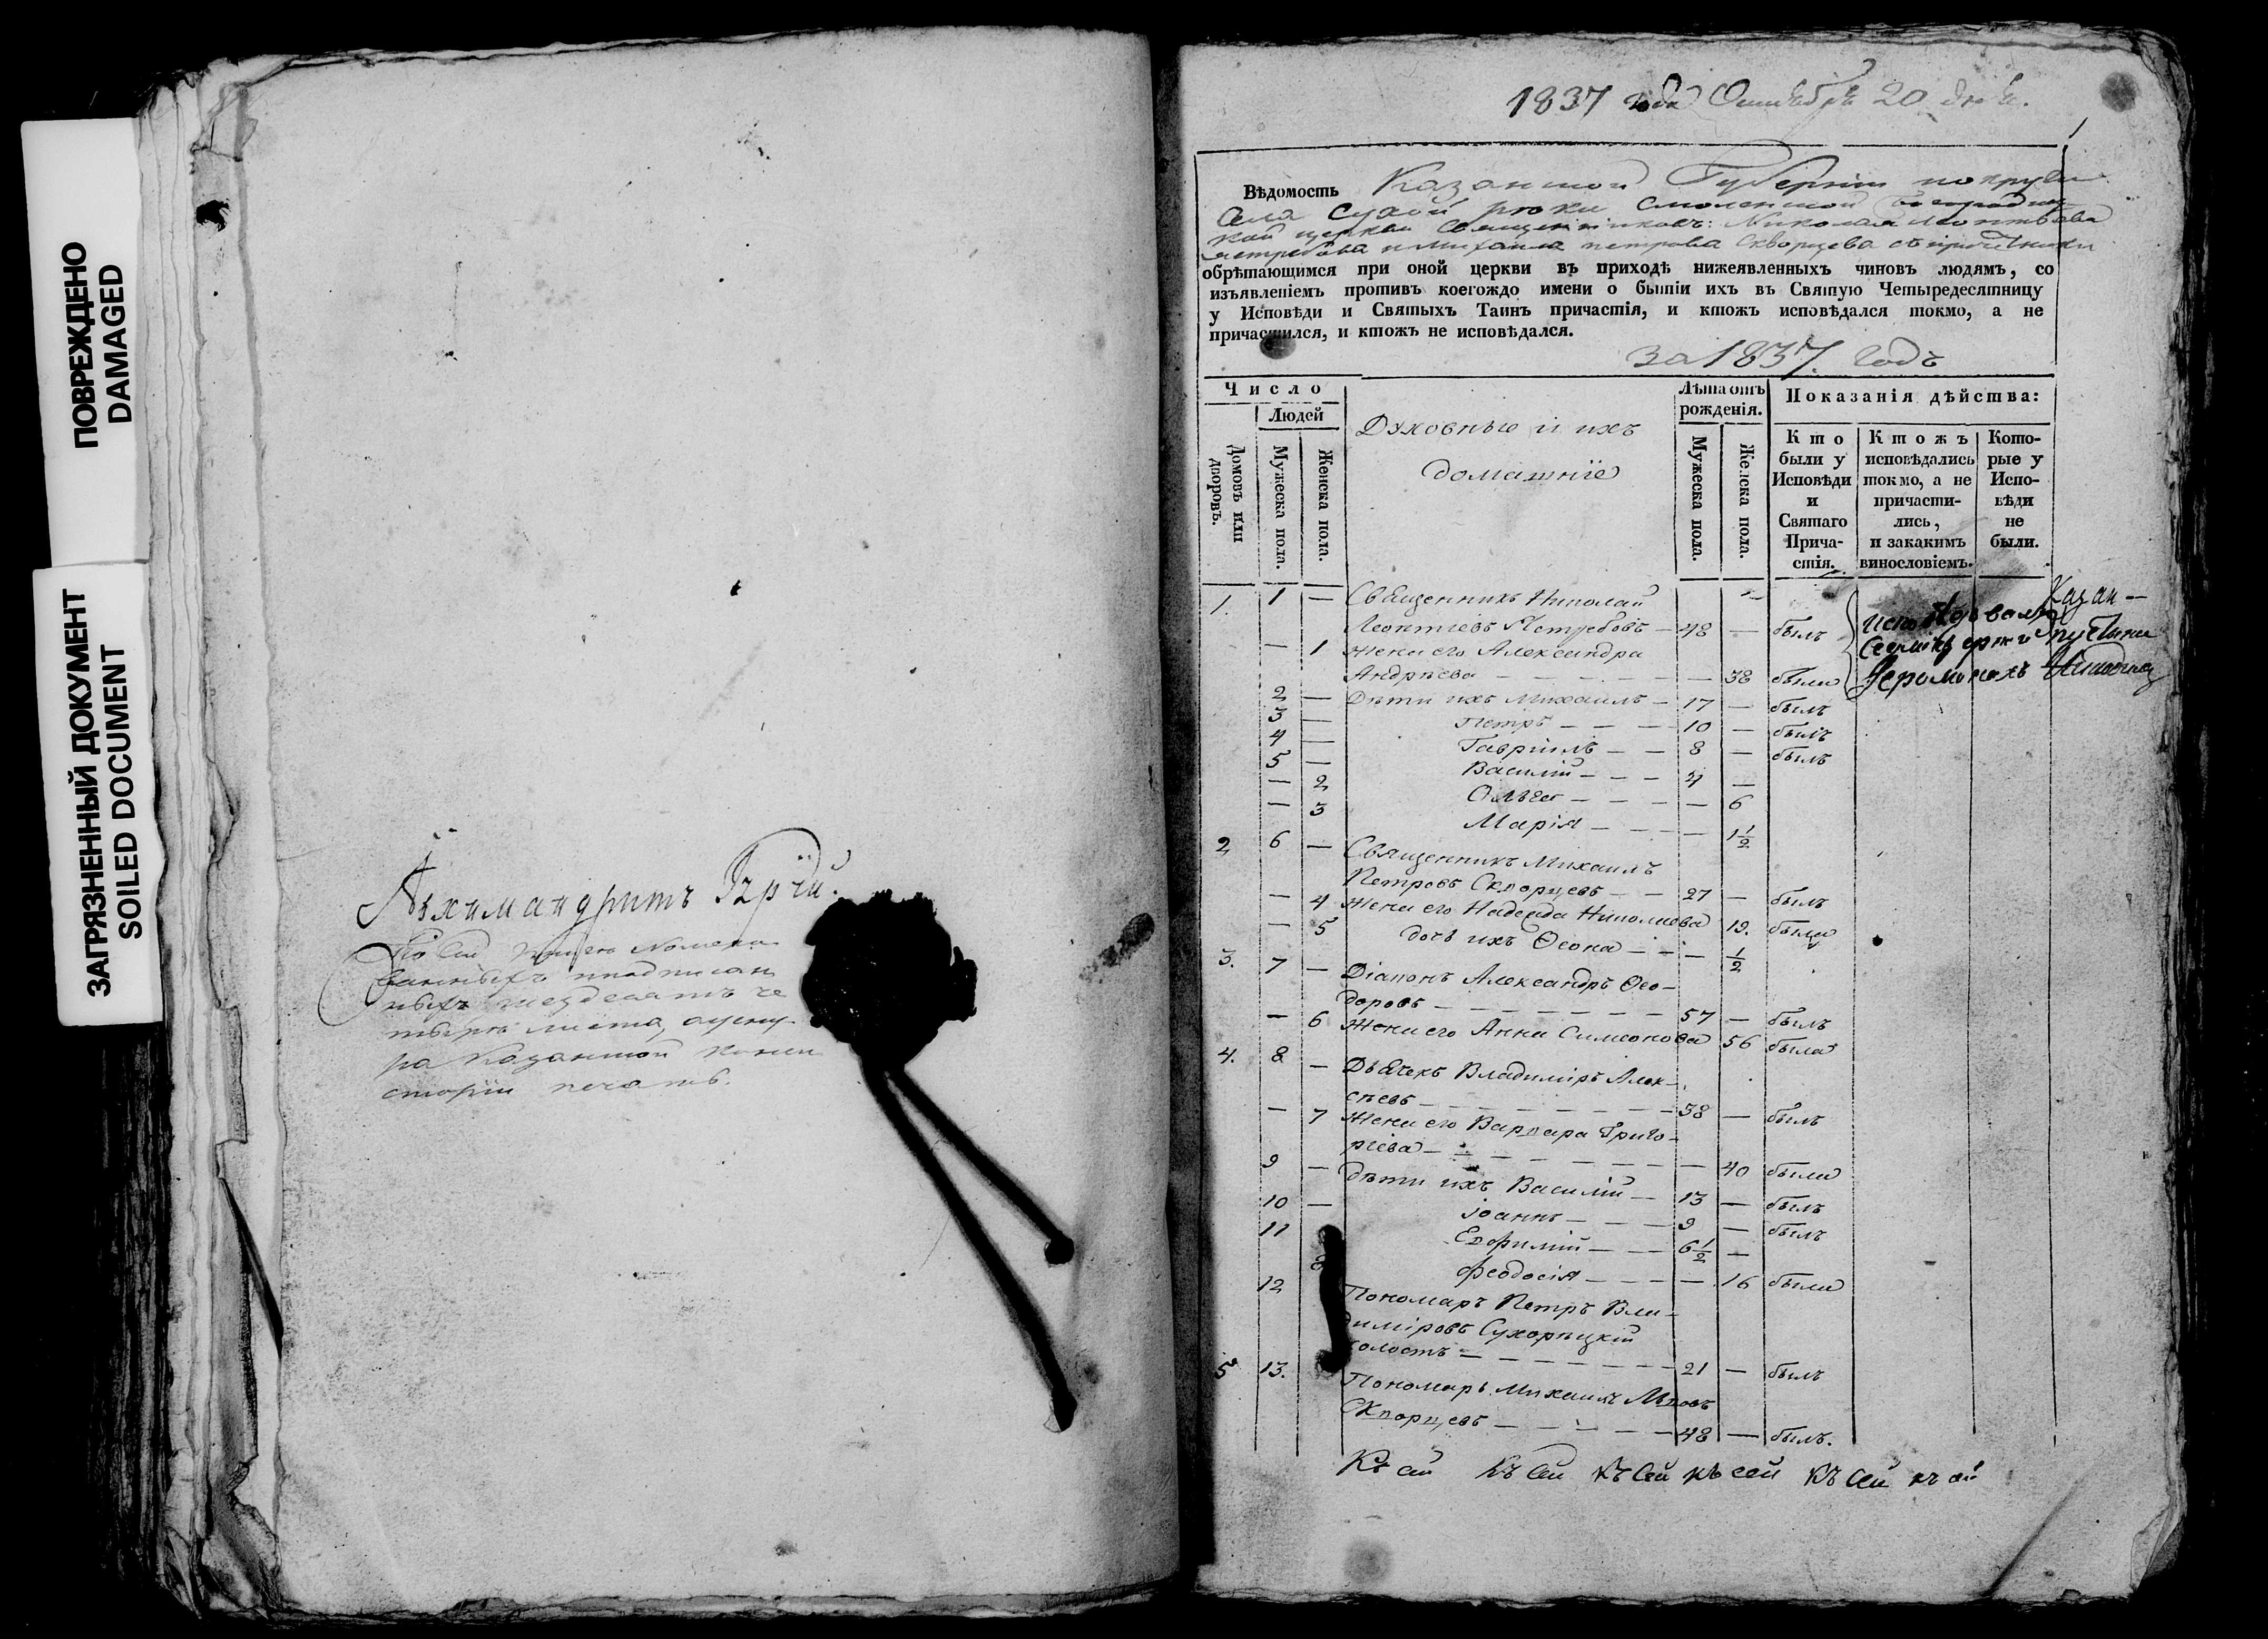 ПОВРЕЖДЕНО
DAMAGED
ЗАГРЯЗНЕННЫЙ ДОКУМЕНТ
SOILED DOCUMENT
Архимандритъ Гурій.
четыре листа,
ра Казанской Конси
сторіи печать.
1837 года Октября 20 дня.
1
Вѣдомость Казанской Губерніи
Села Сухой рѣки Смоленской Богородиц
кой церкви Священниковъ: Николая Леонтьева
Ястребова и Михаила Петрова Скворцева съ причетники
обрѣтающимся при оной церкви въ приходѣ нижеявленныхъ чиновъ людямъ, со
изъявленіемъ противъ коегождо имени о бытіи ихъ въ Святую Четыредесятницу
у Исповѣди и Святыхъ Таинъ причастія, и ктожъ исповѣдался токмо, а не
причастился, и ктожъ не исповѣдался.
за 1837. Годъ
Число
Людей
Домовъ или дворовъ.
Мужеска пола.
Женска пола.
Духовные и ихъ
домашніе
Лѣта отъ рожденія.
Мужеска пола.
Женска пола.
Показанія дѣйства:
Кто были у Исповѣди и Святаго Причастія.
Ктожъ исповѣдались токмо, а не причастились, и закакимъ винословіемъ.
Которые у Исповѣди не были.
1. 1 — Священникъ Николай
Леонтіевъ Ястребовъ — 48 — былъ
— 1 Жена его Александра
Андрѣева — — 38 была
2 — Дѣти ихъ Михаилъ — 17 — былъ
3 — Петръ — — — 10 — былъ
4 — Гавріилъ — — 8 — былъ
5 — Василій — — — 4 —
— 2 Ольга — — — — 6
— 3 Марія — — — — 1½
Казан—
Исповѣдовалъ
Седміезерной пустыни
Іеромонахъ
2 6 — Священникъ Михаилъ
Петровъ Скворцевъ — — 27 — былъ
— 4 Жена его Надежда Николаева 19. была
— 5 дочь их Ѳеона — — — ½
3. 7 — Діаконъ Александръ Ѳео-
доровъ — — 57 — былъ
— 6 Жена его Анна Симеонова 56 была
4. 8 — Дьячекъ Владиміръ Алек-
сѣевъ — — 38 — былъ
— 7 Жена его Варвара Григо-
ріева — — 40 была
9 — Дѣти ихъ Василій — 13 — былъ
10 — Іоаннъ — — — 9 — былъ
11 Евфимій — — 6½ —
Феодосія — — — — 16 была
12 Пономарь Петръ Вла-
диміровъ Сухорѣцкій
холостъ — — 21 — былъ
5 13. Пономарь Михаилъ Львовъ
Скворцевъ — — 48 — былъ.
Къ сей Къ сей Къ сей къ сей Къ сей къ сей